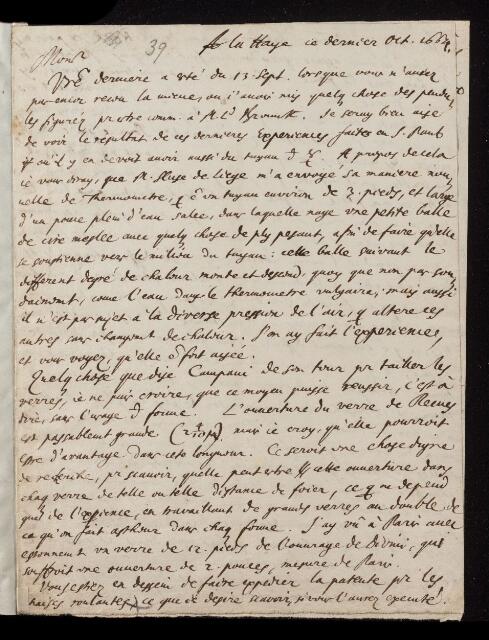 39
A la Haye ce dernier Oct. 1664.
Monsr
Vre derniere a esté du 13 Sept. lorsque vous n'aviez
pas encor receu la miene, ou j'avois mis quelq chose des pendules,
les figures pr vostre comm. à Je seray bien aise
de voir le resultat de ces dernieres Experiences faites en S. Pauls
et s'il y en devoit avoir aussi du tuyau de A propos de cela
je vous diray, que M. Sluse de Liege m'a envoyé sa maniere nou-
velle de Thermometre, q est un tuyau environ de 2. pieds, et large
d'un pouce plein d'eau salee, dans laquelle nage une petite balle
de cire meslee avec quelq chose de plus pesant, afin de faire qu'elle
se soustienne vers le milieu du tuyau: cette balle suivant le
different degré de chaleur monte et descend, quoy que non par
comme l'eau dans le thermometre vulgaire; mais aussi
il n'est pas sujet a la diverse pression de l'air, q altere ces
autres sans changement de chaleur. J'en ay fait l'experience,
et vous voyez, qu'elle est fort aisée.
Quelq chose que dise Campani de son tour pr tailler les
verres, je ne puis croire, que ce moyen puisse reussir, c'est à
dire, sans l'usage de forme. L'ouverture du verre de Reeves
est passablemt grande mais je croy, qu'elle pourroit
estre d'avantage dans cete longueur. Ce seroit une chose digne
de recherche, pr scavoir, quelle peut estre cette ouverture dans
chaq verre de telle ou telle distance de foier, ce q ne depend
que de l'Experience, en travaillant de grands verres au double de
ce qu'on fait asthure dans chaq forme. J'ay vu à Paris avec
estonnement un verre de 12. pieds de l'ouvrage de Divini, qui
souffroit une ouverture de 2. pouces, mesure de Paris.
Vous estiez en dessein de faire expedier la patente pr les
chaises roulantes, ce que je desire scavoir, si vous l'aurez executé.